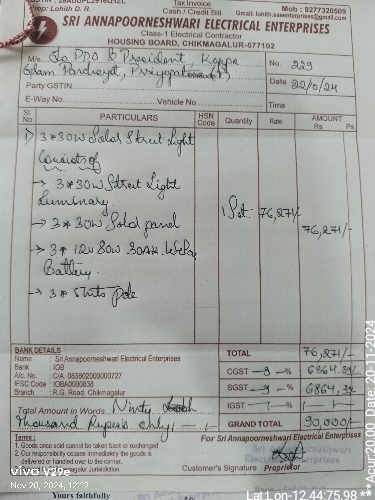 Prop: Lohith D. R.
Tax Invoice
Cash / Credit Bill
Mob : 8277320509
Gmail: lohith.sasenterprises@gmail.com
SRI ANNAPOORNESHWARI ELECTRICAL ENTERPRISES
Class-1 Electrical Contractor
HOUSING BOARD, CHIKMAGALUR-577102
M/s. To PDO & President, Koppa
Gram Panchayat,
No. 229
Party GSTIN
Date 22/0/24
E-Way No.
Vehicle No.
Time
Sl. No
PARTICULARS
HSN Code
Quantity
Rate
AMOUNT
Rs. Ps
1) 3*30W Solar Street Light
Consists of
→ 3*30W Street Light
Luminary.
→ 3*30W Solar panel
1 Set. 76,271/- 76,271/-
→ 3* 12v 80W 30AH
Battery.
→ 3* pole
BANK DETAILS
Name : Sri Annapoorneshwari Electrical Enterprises
Bank : IOB
A/c. No. : C/A. 083802000000727
IFSC Code : IOBA0000838
Branch : R.G. Road, Chikmagalur
TOTAL 76,271/-
CGST - 9 - % 6864.39/-
SGST - 9 - % 6864.39/-
IGST - %
Total Amount in Words Ninty
Thousand Rupees only/-
GRAND TOTAL 90,000/-
Terms :
1. Goods once sold cannot be taken back or exchanged
2. Our responsibility ceases immediately the goods is
delivered or handed over to the carrier.
Jurisdiction
For Sri Annapoorneshwari Electrical Enterprises
Customer's Signature Proprietor
vivo V29e
Nov 20, 2024, 12:02
Yours faithfully
Lat Lon 12.44:75.98
**Acur:20.00 Date: 20-11-2024